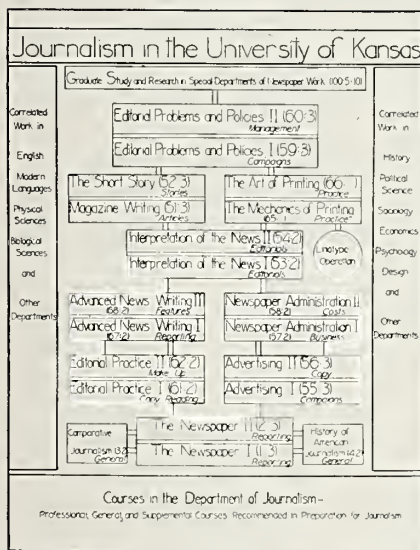 Journalism in the University of Kansas
Graduate Study and Research in Special Departments of Newspaper Work (100:5-10)
Correlated
Work in
English
Modern
Languages
Physical
Sciences
Biological
Sciences
and
Other
Departments
Editorial Problems and Policies II (60:3)
Management
Editorial Problems and Policies I (59:3)
Campaigns
The Short Story (52:3)
Stories
Magazine Writing (51:3)
Articles
The Art of Printing (66: )
Practice
The Mechanics of Printing
(65: ) Practice
Interpretation of the News II (54:2)
Editorials
Interpretation of the News I (53:2)
Editorials
Linotype
Operation
Advanced News Writing III
(68:2) Features
Advanced News Writing I
(67:2) Reporting
Newspaper Administration II
(58:2) Costs
Newspaper Administration I
(57:2) Business
Editorial Practice II (62:2)
Make Up
Editorial Practice I (61:2)
Copy Reading
Advertising II (56:3)
Copy
Advertising I (55:3)
Campaigns
Comparative
Journalism (3:2)
General
The Newspaper II (2:3)
Reporting
The Newspaper I (1:3)
Reporting
History of
American
Journalism (4:2)
General
Correlated
Work in
History
Political
Science
Sociology
Economics
Psychology
Design
and
Other
Departments
Courses in the Department of Journalism-
Professional, General, and Supplemental Courses Recommended in Preparation for Journalism